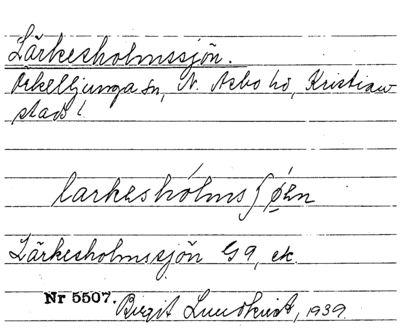 Lärkesholmssjön.
Örkelljunga sn, N. Asbo hd, Kristian-
stads l.
larkeshólmsʃǿən
Lärkesholmssjön G9, ek.
Nr 5507. Birgit Lundkvist, 1939.